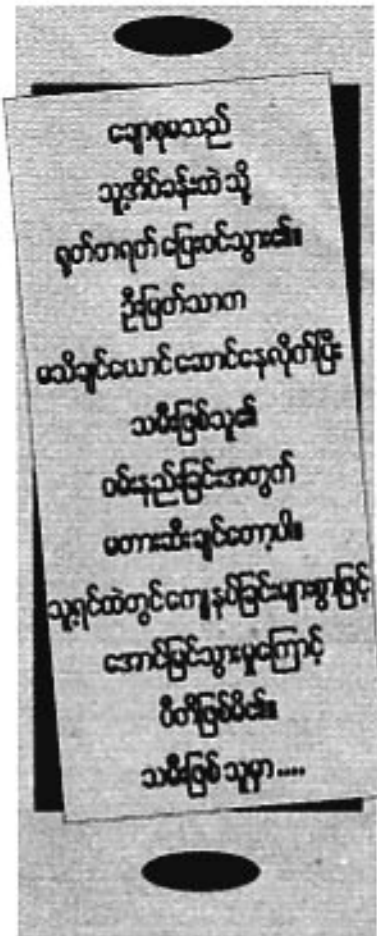 ချောစုမသည်
သူ့အိပ်ခန်းထဲသို့
ရုတ်တရက် ပြေးဝင်သွား၏။
ဦးမြတ်သာက
မသိချင်ယောင် ဆောင်နေလိုက်ပြီး
သမီးဖြစ်သူ၏
ဝမ်းနည်းခြင်းအတွက်
မတားဆီးချင်တော့ပါ။
သူ့ရင်ထဲတွင်ကျေနပ်ခြင်းများစွာဖြင့်
အောင်မြင်သွားမှုကြောင့်
ပီတိဖြစ်မိ၏။
သမီးဖြစ်သူမှာ ....